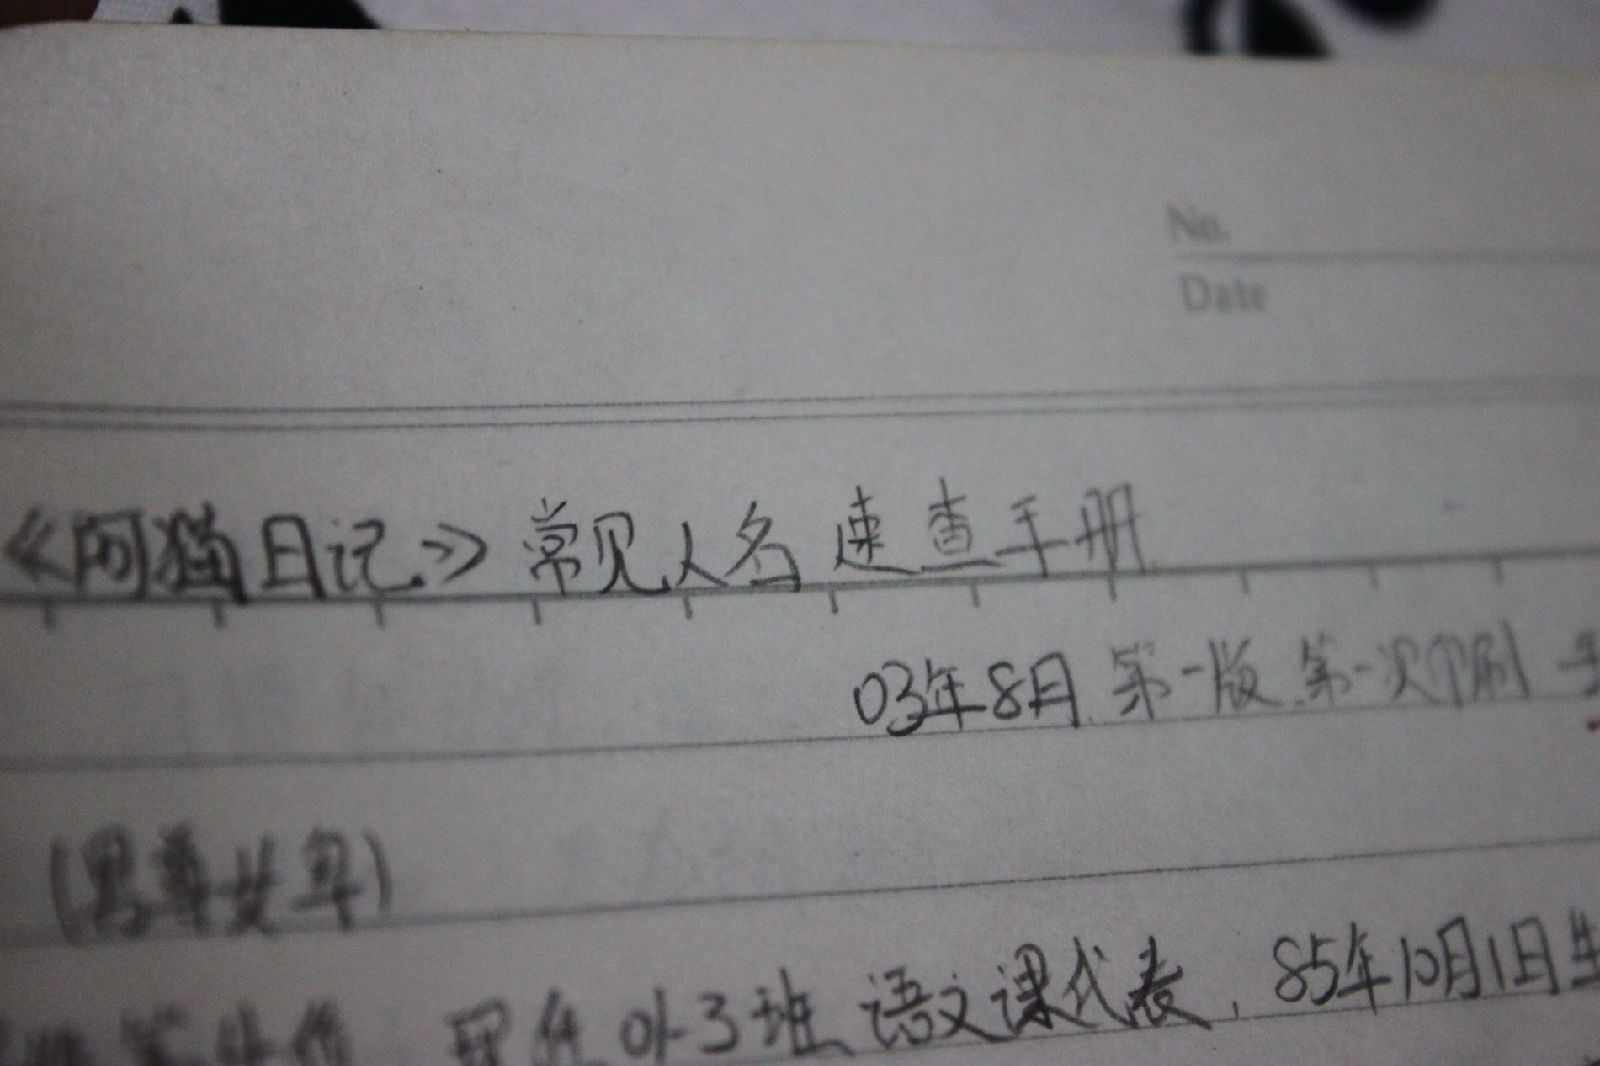 No.
Date
《阿猫日记》常见人名速查手册
03年8月 第一版 第一次印刷
(男尊女卑)
现任 01-3班 语文课代表，85年10月1日生